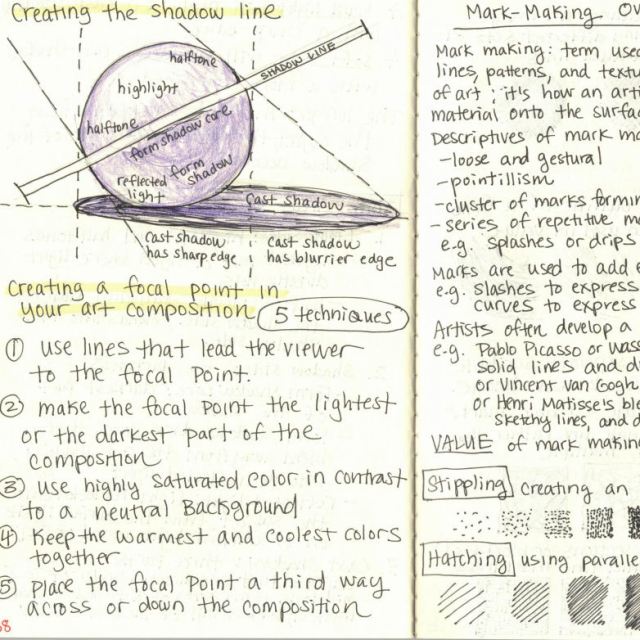 Creating the Shadow line
halftone
SHADOW LINE
highlight
halftone
form shadow core
form
shadow
reflected
light
Cast shadow
Cast shadow
has sharp edge
cast shadow
has blurrier edge
Creating a focal point in
your art composition
5 techniques
① use lines that lead the viewer
to the focal Point.
② make the focal point the lightest
or the darkest part of the
composition
③ use highly saturated color in contrast
to a neutral Background
④ Keep the warmest and coolest colors
together
⑤ Place the focal Point a third way
across or down the composition
68
Mark-Making
Mark making: term
lines, patterns, and
of art; it's how an
material onto the
Descriptives of mark
-loose and gestural
-pointillism
-cluster of marks
-series of repetitive
e.g. splashes or drips
Marks are used to add
e.g. slashes to express
curves to express
Artists often develop a
e.g. Pablo Picasso or
Solid lines and
or Vincent Van
or Henri Matisse's
sketchy lines, and
VALUE of mark
Stippling creating an
Hatching using